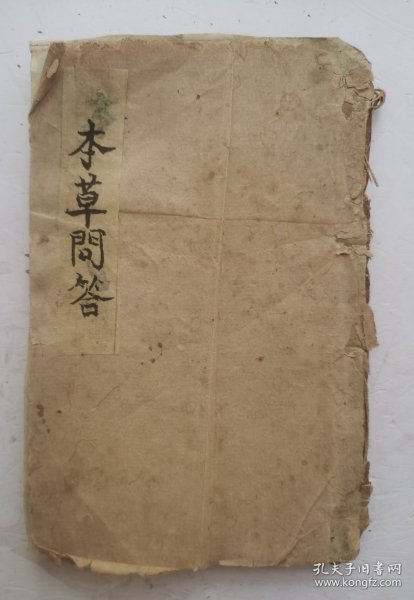 本草問答
孔夫子旧书网
www.kongfz.com